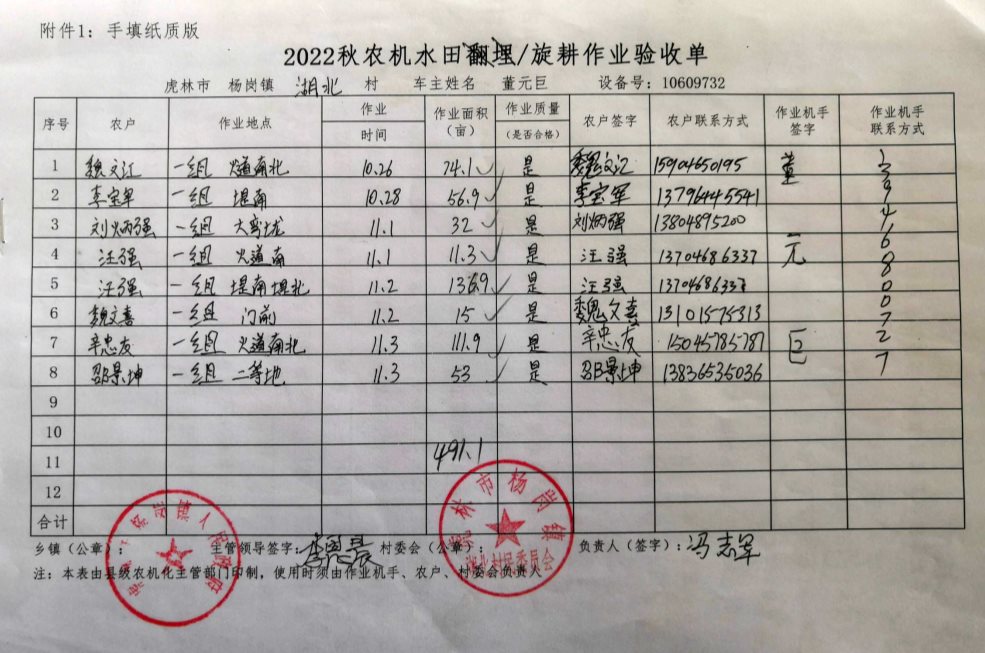 附件1：手填纸质版
2022秋农机水田翻埋/旋耕作业验收单
虎林市 杨岗镇 湖北 村 车主姓名 董元巨 设备号：10609732
序号 农户 作业地点 作业时间 作业面积（亩） 作业质量（是否合格） 农户签字 农户联系方式 作业机手签字 作业机手联系方式
1 魏文江 一组 火道南北 10.26 74.1 是 魏文江 15904650195 董 3
2 李宝军 一组 堤南 10.28 56.9 是 李宝军 13796445541 9
3 刘炳强 一组 大弯垅 11.1 32 是 刘炳强 13804895200 4
4 汪强 一组 火道南 11.1 11.3 是 汪强 13704686337 元 6 8
5 汪强 一组 堤南堤北 11.2 136.9 是 汪强 13704686337 0
6 魏文喜 一组 门前 11.2 15 是 魏文喜 13101575313 0 7
7 辛忠友 一组 火道南北 11.3 111.9 是 辛忠友 15045785787 巨 2
8 邵景坤 一组 二等地 11.3 53 是 邵景坤 13836535036 7
9
10
11 491.1
12
合计
乡镇（公章）： 主管领导签字： 村委会（公章）： 负责人（签字）：冯志军
注：本表由县级农机化主管部门印制，使用时须由作业机手、农户、村委会负责人
杨岗镇人民政府
虎林市杨岗镇
湖北村民委员会